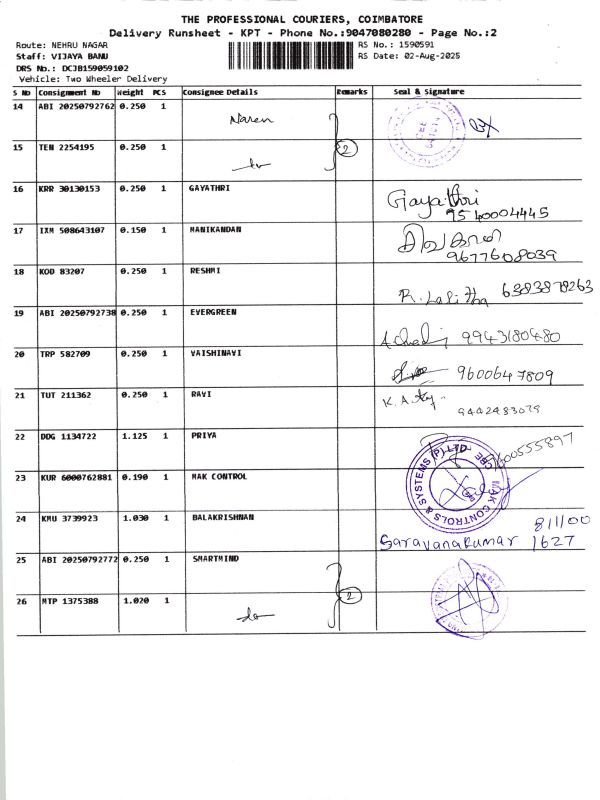 THE PROFESSIONAL COURIERS, COIMBATORE
Delivery Runsheet - KPT - Phone No.:9047080280 - Page No.:2
Route: NEHRU NAGAR
RS No.: 1590591
Staff: VIJAYA BANU
RS Date: 02-Aug-2025
DRS No.: DCJB159059102
Vehicle: Two Wheeler Delivery
S No Consignment No Weight PCS Consignee Details Remarks Seal & Signature
14 ABI 20250792762 0.250 1 Naren
15 TEN 2254195 0.250 1 2
16 KRR 30130153 0.250 1 GAYATHRI Gayathri
9540004445
17 IXM 508643107 0.150 1 MANIKANDAN
9677608039
18 KOD 83207 0.250 1 RESHMI R. Lalitha 6383878263
19 ABI 20250792738 0.250 1 EVERGREEN 9943180480
20 TRP 582709 0.250 1 VAISHNAVI 9600647809
21 TUT 211362 0.250 1 RAVI K. A.
9442483079
22 DDG 1134722 1.125 1 PRIYA 9600555897
23 KUR 6000762881 0.190 1 MAK CONTROL MAK CONTROLS & SYSTEMS (P) LTD CBE
24 KMU 3739923 1.030 1 BALAKRISHNAN Saravanakumar 811100
1627
25 ABI 20250792772 0.250 1 SMARTMIND
26 MTP 1375388 1.020 1 do 2